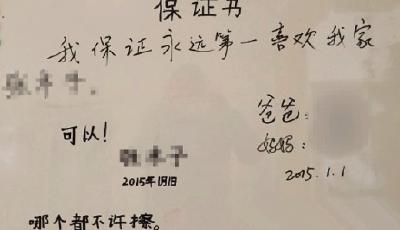 保证书
我保证永远第一喜欢我家
可以！
2015年1月1日
爸爸：
妈妈：
2015.1.1
哪个都不许擦。